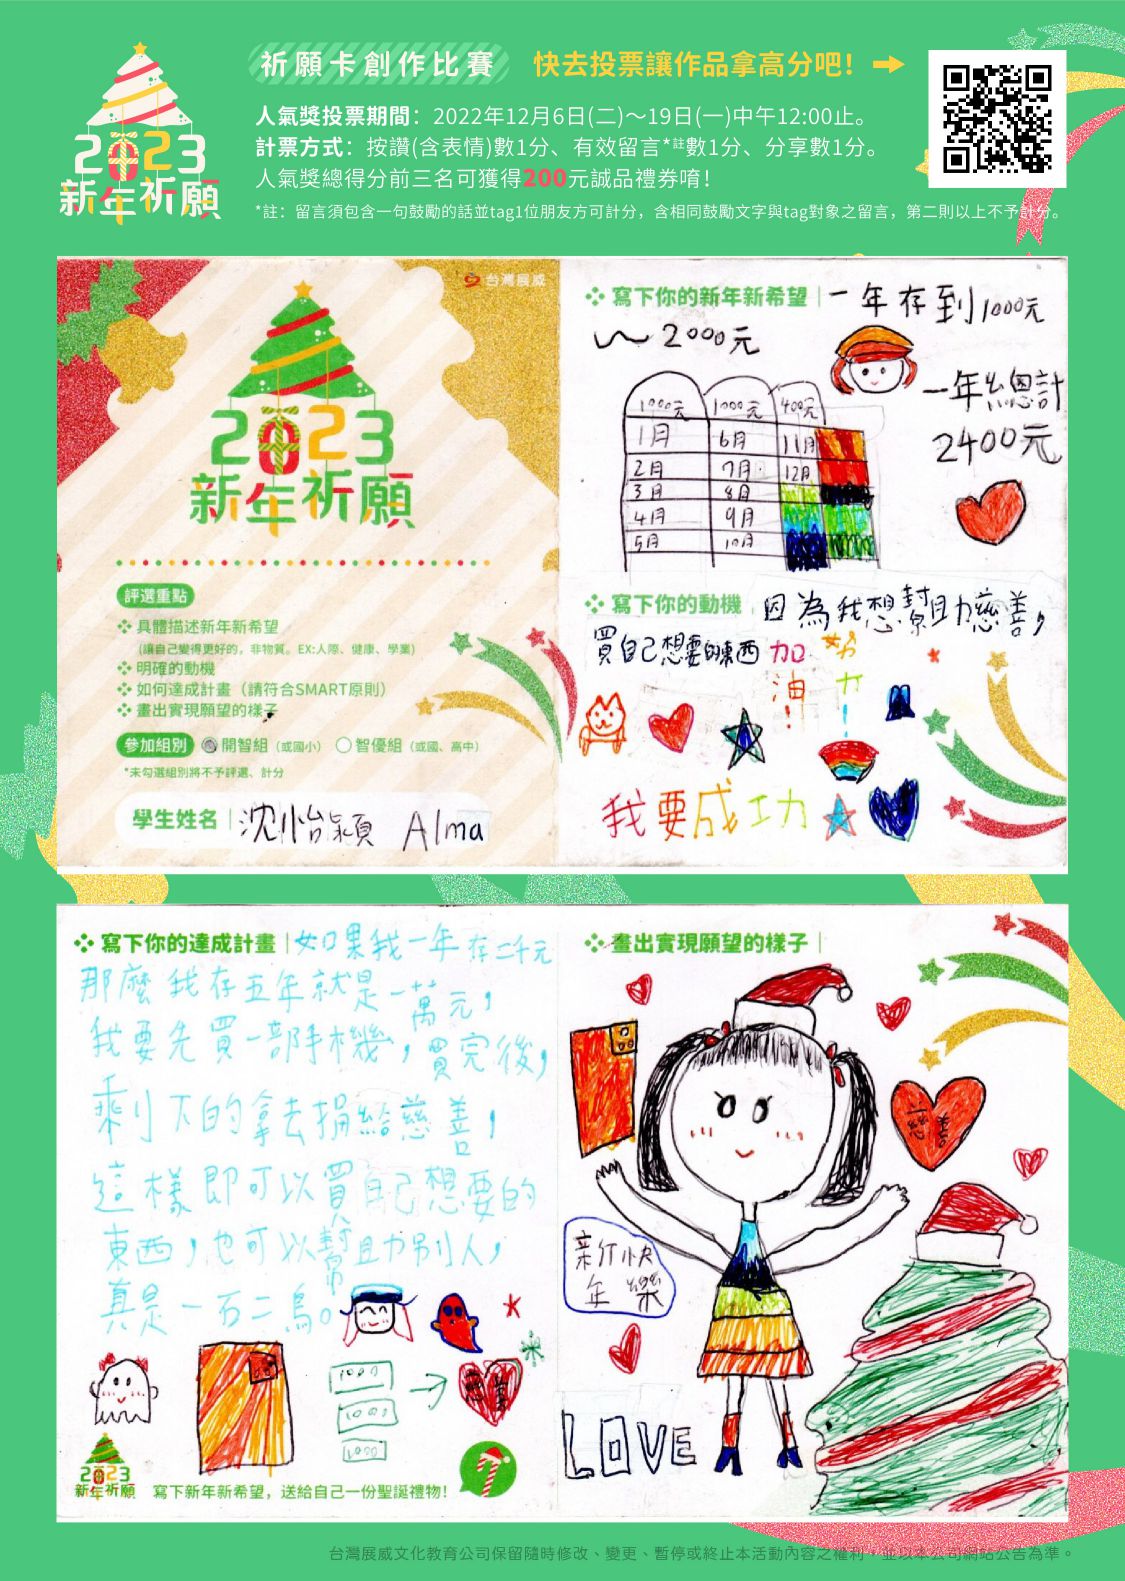 2023
新年祈願
祈願卡創作比賽
快去投票讓作品拿高分吧！
人氣獎投票期間：2022年12月6日(二)～19日(一)中午12:00止。
計票方式：按讚(含表情)數1分、有效留言*註數1分、分享數1分。
人氣獎總得分前三名可獲得200元誠品禮券唷！
*註：留言須包含一句鼓勵的話並tag1位朋友方可計分，含相同鼓勵文字與tag對象之留言，第二則以上不予計分。
台灣展威
2023
新年祈願
評選重點
具體描述新年新希望
(讓自己變得更好的，非物質。EX:人際、健康、學業)
明確的動機
如何達成計畫（請符合SMART原則）
畫出實現願望的樣子
參加組別 開智組（或國小） 智優組（或國、高中）
*未勾選組別將不予評選、計分
學生姓名 沈怡潁 Alma
寫下你的新年新希望 一年存到1000元
～2000元
一年總計
2400元
1000元 1000元 400元
1月 6月 11月
2月 7月 12月
3月 8月
4月 9月
5月 10月
寫下你的動機 因為我想幫助慈善，
買自己想要的東西
加油！
努力！
我要成功
寫下你的達成計畫 如果我一年存二千元
那麼我存五年就是一萬元，
我要先買一部手機，買完後，
剩下的拿去捐給慈善，
這樣即可以買自己想要的
東西，也可以幫助別人，
真是一石二鳥。
1000
1000
1000
慈善
2023
新年祈願
寫下新年新希望，送給自己一份聖誕禮物！
畫出實現願望的樣子
慈善
新年快樂
LOVE
台灣展威文化教育公司保留隨時修改、變更、暫停或終止本活動內容之權利，並以本公司網站公告為準。